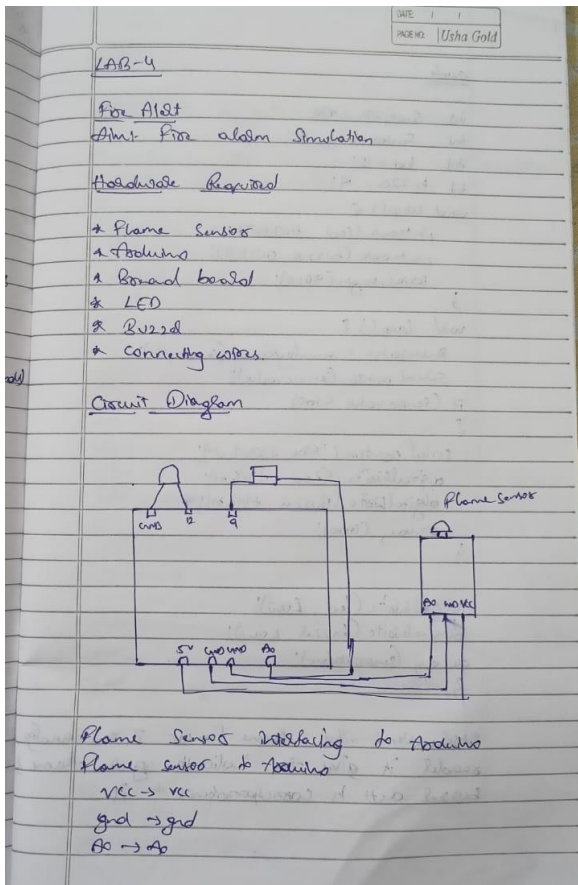 DATE / /
PAGE NO. Usha Gold
LAB-4
Fire Alert
Aim:- Fire alarm Simulation
Hardware Required
* Flame Sensor
* Arduino
* Bread board
* LED
* Buzzer
* Connecting wires.
Circuit Diagram
Flame sensor
GND 12 9
A0 GND VCC
5V GND GND A0
Flame Sensor interfacing to Arduino
Flame sensor to Arduino
VCC → VCC
gnd → gnd
A0 → A0